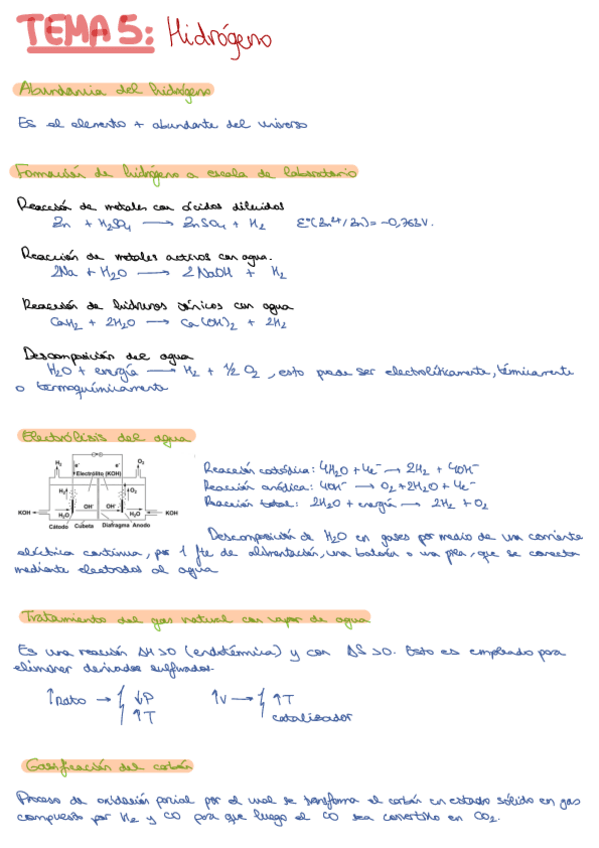 TEMA 5: Hidrógeno
Abundancia del hidrógeno
Es el elemento + abundante del universo
Formación de hidrógeno a escala de laboratorio
Reacción de metales con ácidos diluidos
Zn + H₂SO₄ → ZnSO₄ + H₂ E°(Zn²⁺/Zn) = -0,763V.
Reacción de metales activos con agua.
2Na + H₂O → 2NaOH + H₂
Reacción de hidruros iónicos con agua
CaH₂ + 2H₂O → Ca(OH)₂ + 2H₂
Descomposición del agua
H₂O + energía → H₂ + 1/2 O₂, esto puede ser electrolíticamente, térmicamente
o termoquímicamente
Electrólisis del agua
H₂ e⁻ e⁻ O₂
Electrólito (KOH)
H₂ O₂
OH⁻ OH⁻
KOH H₂O H₂O KOH
Cátodo Cubeta Diafragma Anodo
Reacción catódica: 4H₂O + 4e⁻ → 2H₂ + 4OH⁻
Reacción anódica: 4OH⁻ → O₂ + 2H₂O + 4e⁻
Reacción total: 2H₂O + energía → 2H₂ + O₂
Descomposición de H₂O en gases por medio de una corriente
eléctrica continua, por 1 fte de alimentación, una batería o una pila, que se conecta
mediante electrodos al agua
Tratamiento del gas natural con vapor de agua
Es una reacción ΔH>0 (endotérmica) y con ΔS>0. Esto es empleado para
eliminar derivados sulfurados.
↑Rdto → { ↓P ↑T ↑V → { ↑T catalizador
Gasificación del carbón
Proceso de oxidación parcial por el cual se transforma el carbón en estado sólido en gas
compuesto por H₂ y CO para que luego el CO sea convertido en CO₂.